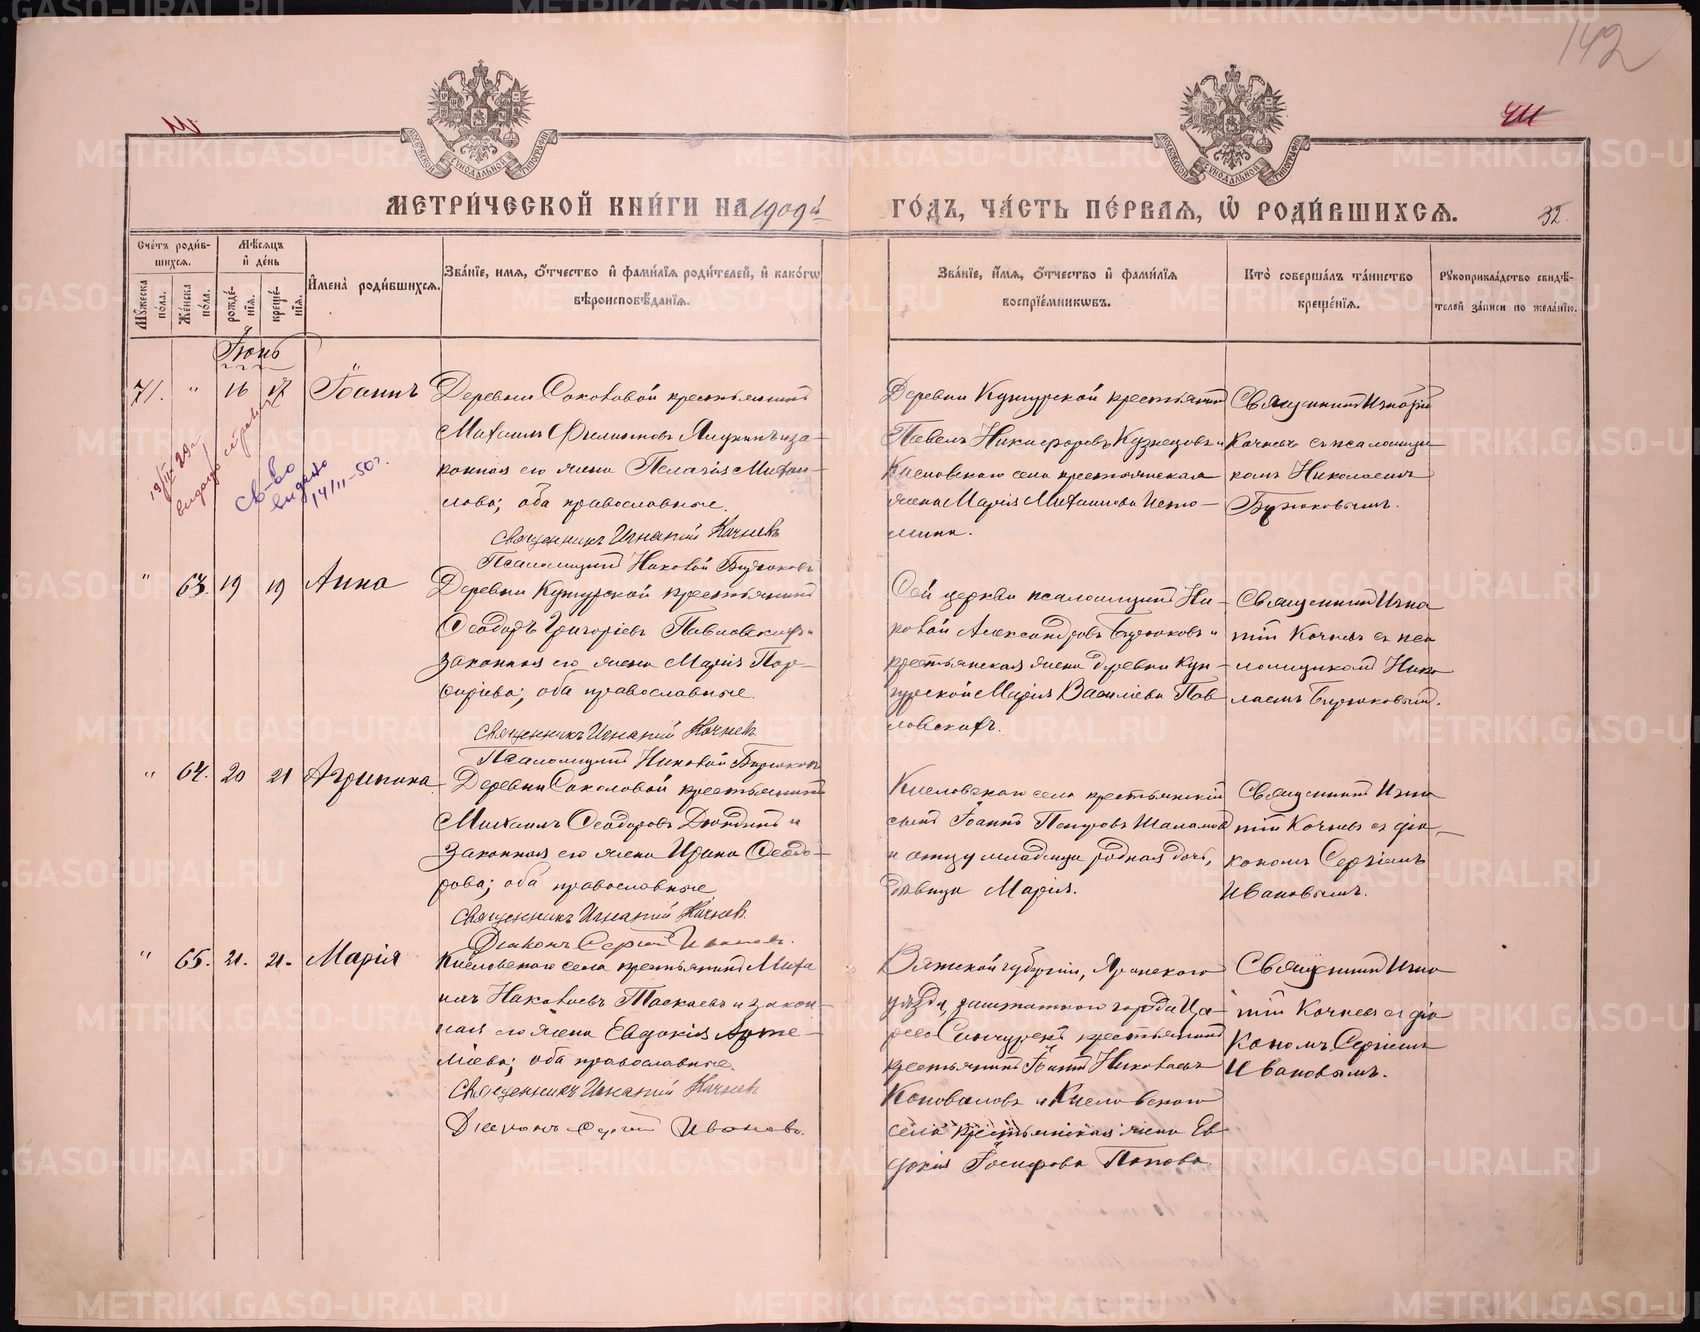 142
МЕТРИ́ЧЕСКОЙ КНИ́ГИ НА 1909й
ГО́ДЪ, ЧА́СТЬ ПЕ́РВАЯ, Ѽ РОДИ́ВШИХСЯ.
32.
Сче́тъ роди́в-
шихся.
Мѣ́сяцъ
и҆ де́нь
И҆мена̀ роди́вшихся.
Зва́нїе, имя, ѻ҆́тчество и҆ фами́лїя роди́телей, и҆ како́гѡ
вѣроисповѣ́данїя.
Мꙋ́жеска
по́ла.
Же́нска
по́ла.
рожде́-
нїя.
креще́-
нїя.
Зва́нїе, и҆́мя, ѻ҆́тчество и҆ фами́лїя
воспрїе́мникѡвъ.
Кто̀ соверша́лъ та́инство
креще́нїя.
Рꙋкоприкла́дство свидѣ́-
телей за́писи по жела́нїю.
Іюнь
71. " 16 17 Іоаннъ
Деревни Соковой крестьянинъ
Михаилъ Филиповъ
конная его жена Пелагія Миха-
лова; оба православные.
Священникъ Игнатій Кочневъ
Псаломщикъ Николай Бирюковъ
Деревни Кунгурской крестьянинъ
Павелъ Никифоровъ Кузнецовъ и
Кисловскаго села крестьянская
жена Марія Михаилова
мина.
Священникъ Игнатій
Кочневъ съ псаломщи-
комъ Николаемъ
Бирюковымъ.
выдано
св-во
выдано
14/II-50г.
" 63. 19 19 Анна
Деревни Кунгурской крестьянинъ
Ѳеодоръ Григоріевъ Павловскихъ и
законная его жена Марія Пор-
фиріева; оба православные.
Священникъ Игнатій Кочневъ
Псаломщикъ Николай Бирюковъ
Сей церкви псаломщикъ Ни-
колай Александровъ Бирюковъ и
крестьянская жена деревни Кун-
гурской Марія Василіева Пав
ловскихъ.
Священникъ Игна
тій Кочневъ съ пса
ломщикомъ Нико
лаемъ Бирюковымъ.
" 64. 20 21 Агрипина
Деревни Соколовой крестьянинъ
Михаилъ Ѳеодоровъ и
законная его жена Ирина Ѳеодо-
рова; оба православные
Священникъ Игнатій Кочневъ
Діаконъ Сергій Ивановъ.
Кисловскаго села крестьянскій
сынъ Іоаннъ Петровъ Шаламовъ
и отцу младенца родная дочь,
дѣвица Марія.
Священникъ Игна
тій Кочневъ съ діа-
кономъ Сергіемъ
Ивановымъ.
" 65. 21. 21. Марія
Кисловскаго села крестьянинъ Миха
илъ Николаевъ Таскаевъ и закон-
ная его жена Евдокія Арте-
міева; оба православные.
Священникъ Игнатій Кочневъ
Діаконъ Сергій Ивановъ.
Вятской губерніи, Яранскаго
уѣзда, заштатнаго города Ца-
рево Санчурска крестьянинъ
крестьянинъ Іоаннъ Николаевъ
Коноваловъ и Кисловскаго
села крестьянская жена Ев
докія Іосифова Попова.
Священникъ Игна
тій Кочневъ съ діа
кономъ Сергіемъ
Ивановымъ.
METRIKI.GASO-URAL.RU